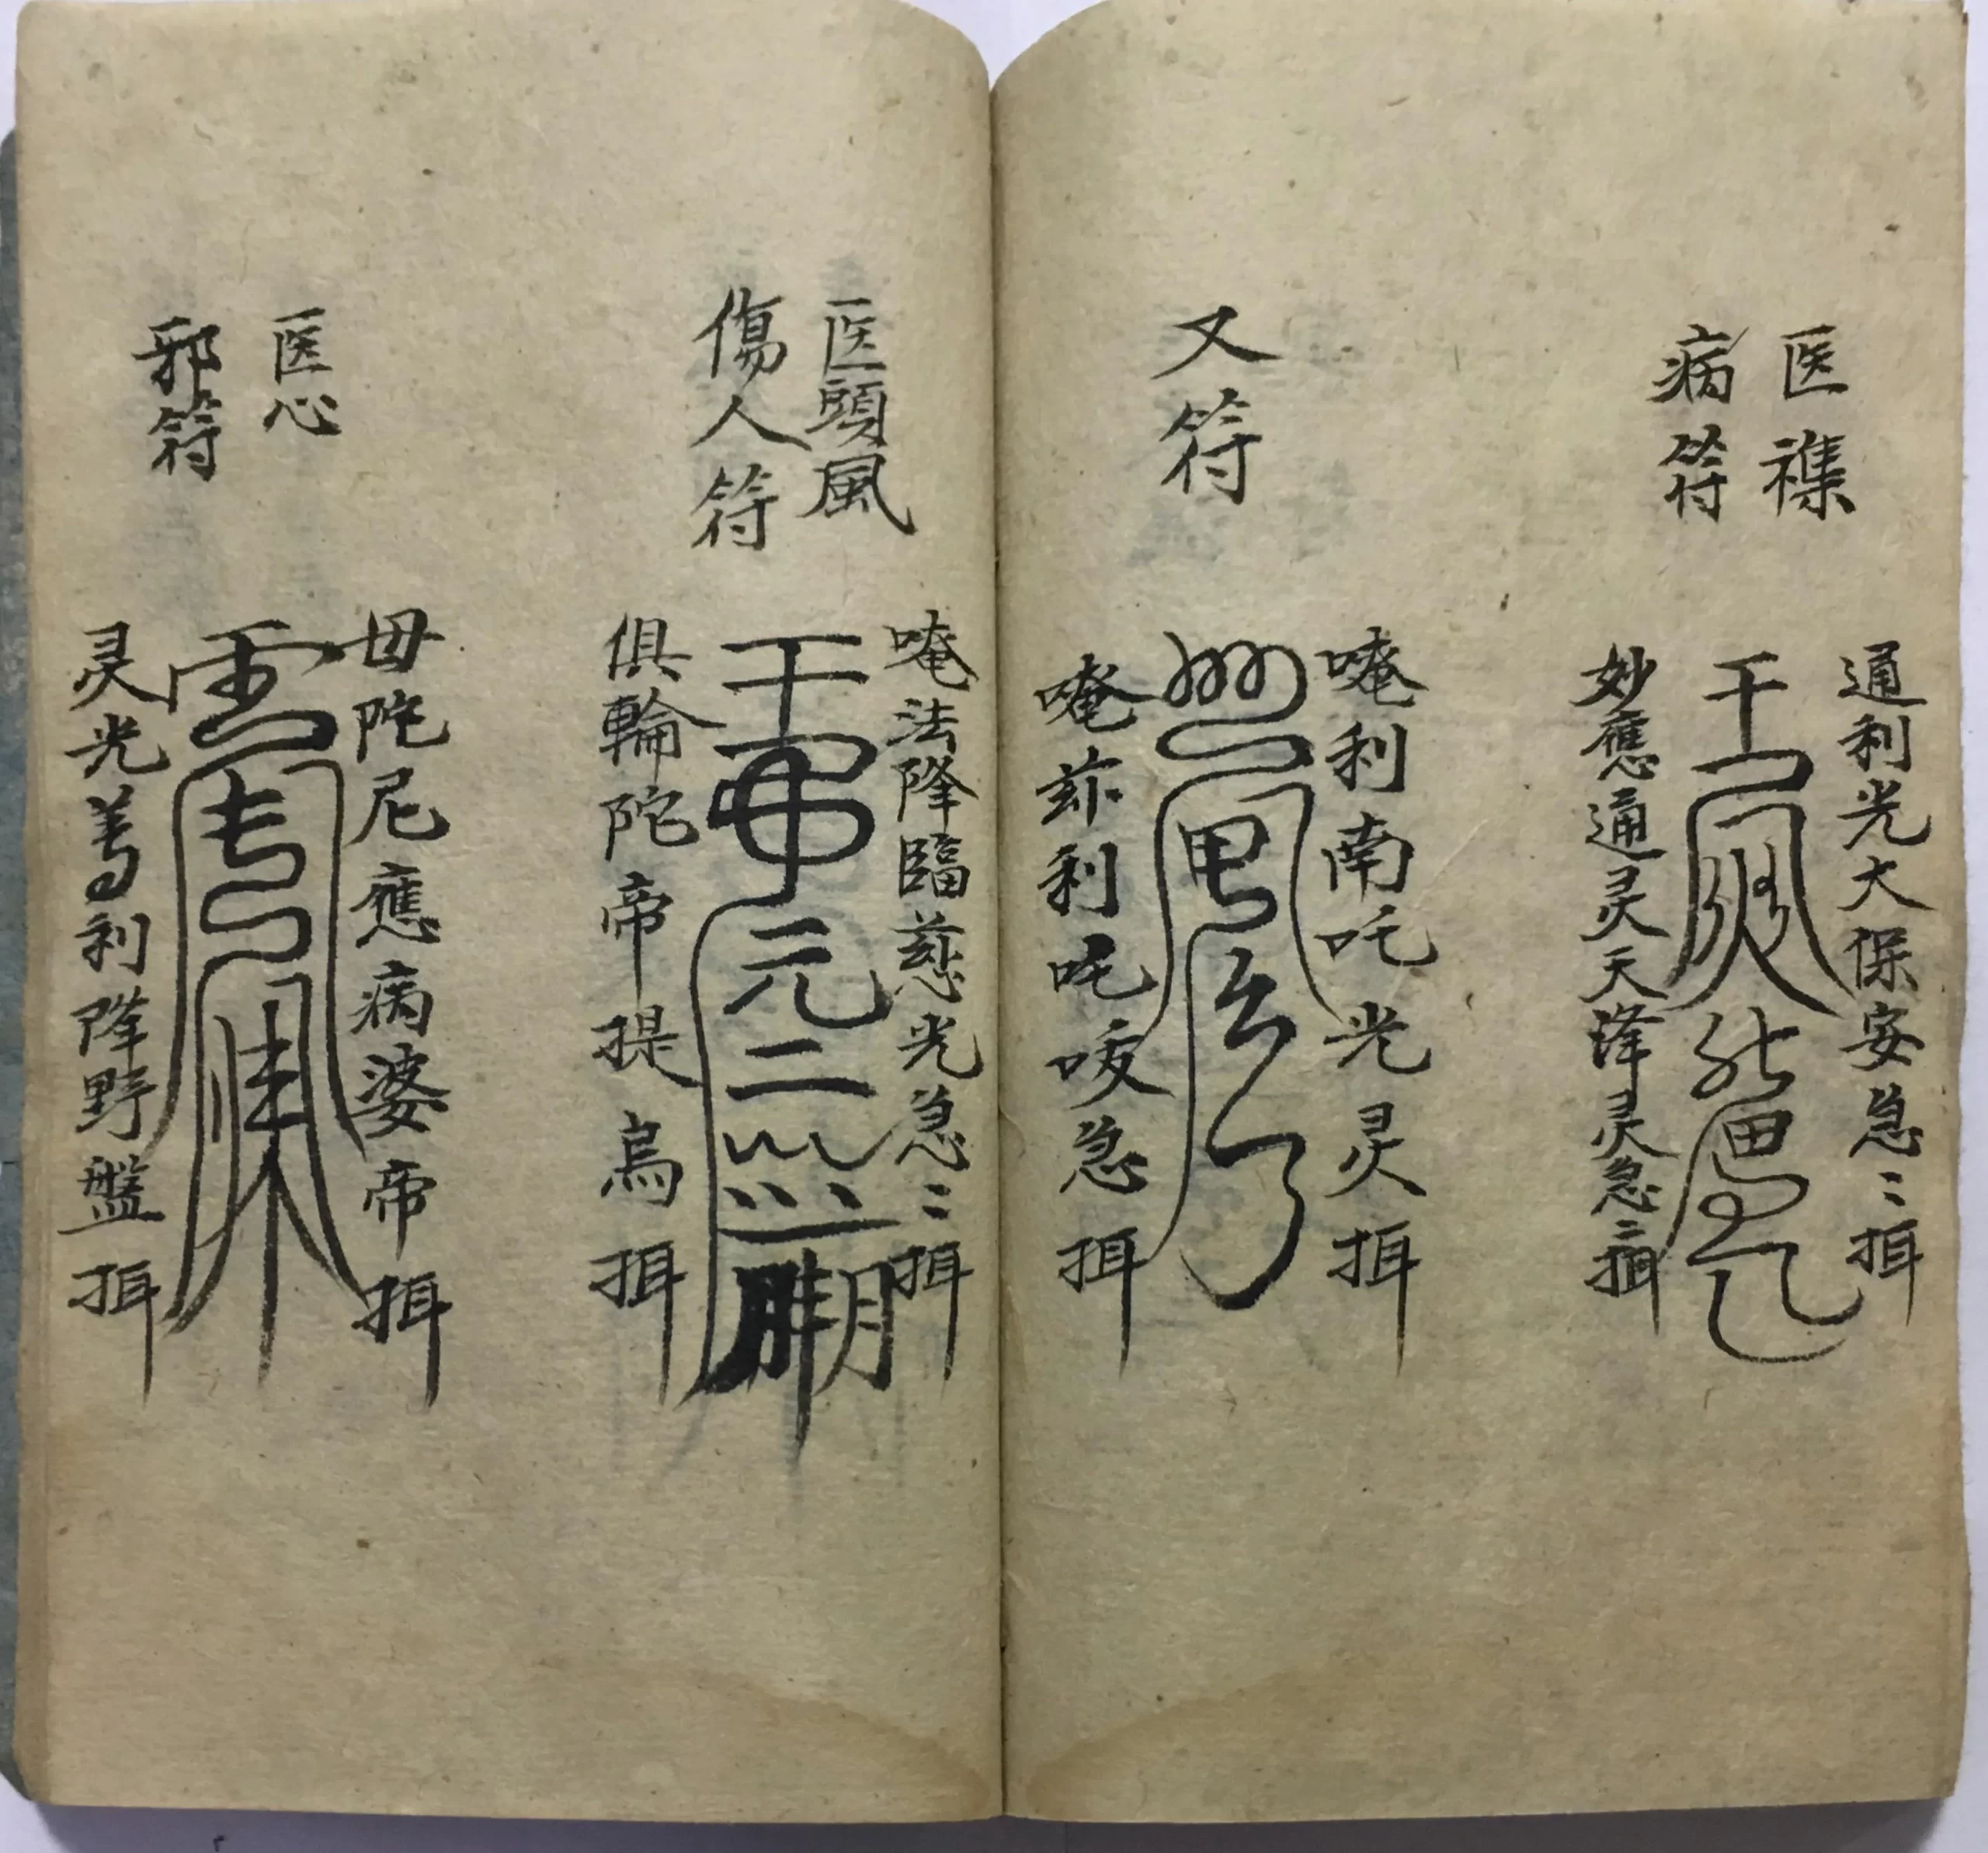 医襍
病符
通利光大保安急〻揖
妙應通灵天澤灵急〻揖
又符
唵利南吒光灵揖
唵利吒急揖
医頭風
傷人符
唵法降臨慈光急〻揖
俱輪陀帝提烏揖
医心
邪符
毋陀尼應病婆帝揖
灵光利降野盤揖